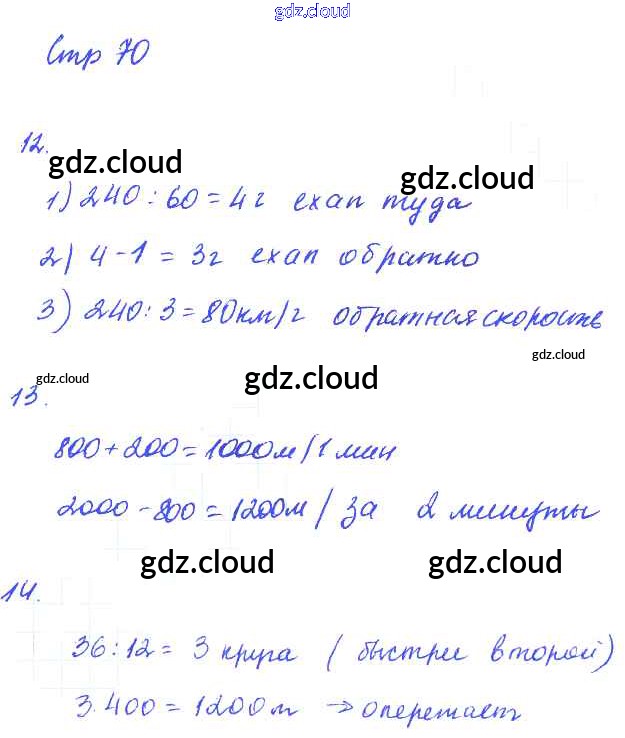 gdz.cloud
Стр 70
12.
gdz.cloud
gdz.cloud
1) 240 : 60 = 4г ехал туда
2) 4 - 1 = 3г ехал обратно
3) 240 : 3 = 80км/г обратная скорость
gdz.cloud
gdz.cloud
gdz.cloud
13.
800 + 200 = 1000м/1 мин
2000 - 800 = 1200м / за 2 минуты
gdz.cloud
gdz.cloud
14.
36 : 12 = 3 круга ( быстрее второй)
3.400 = 1200м → опережает